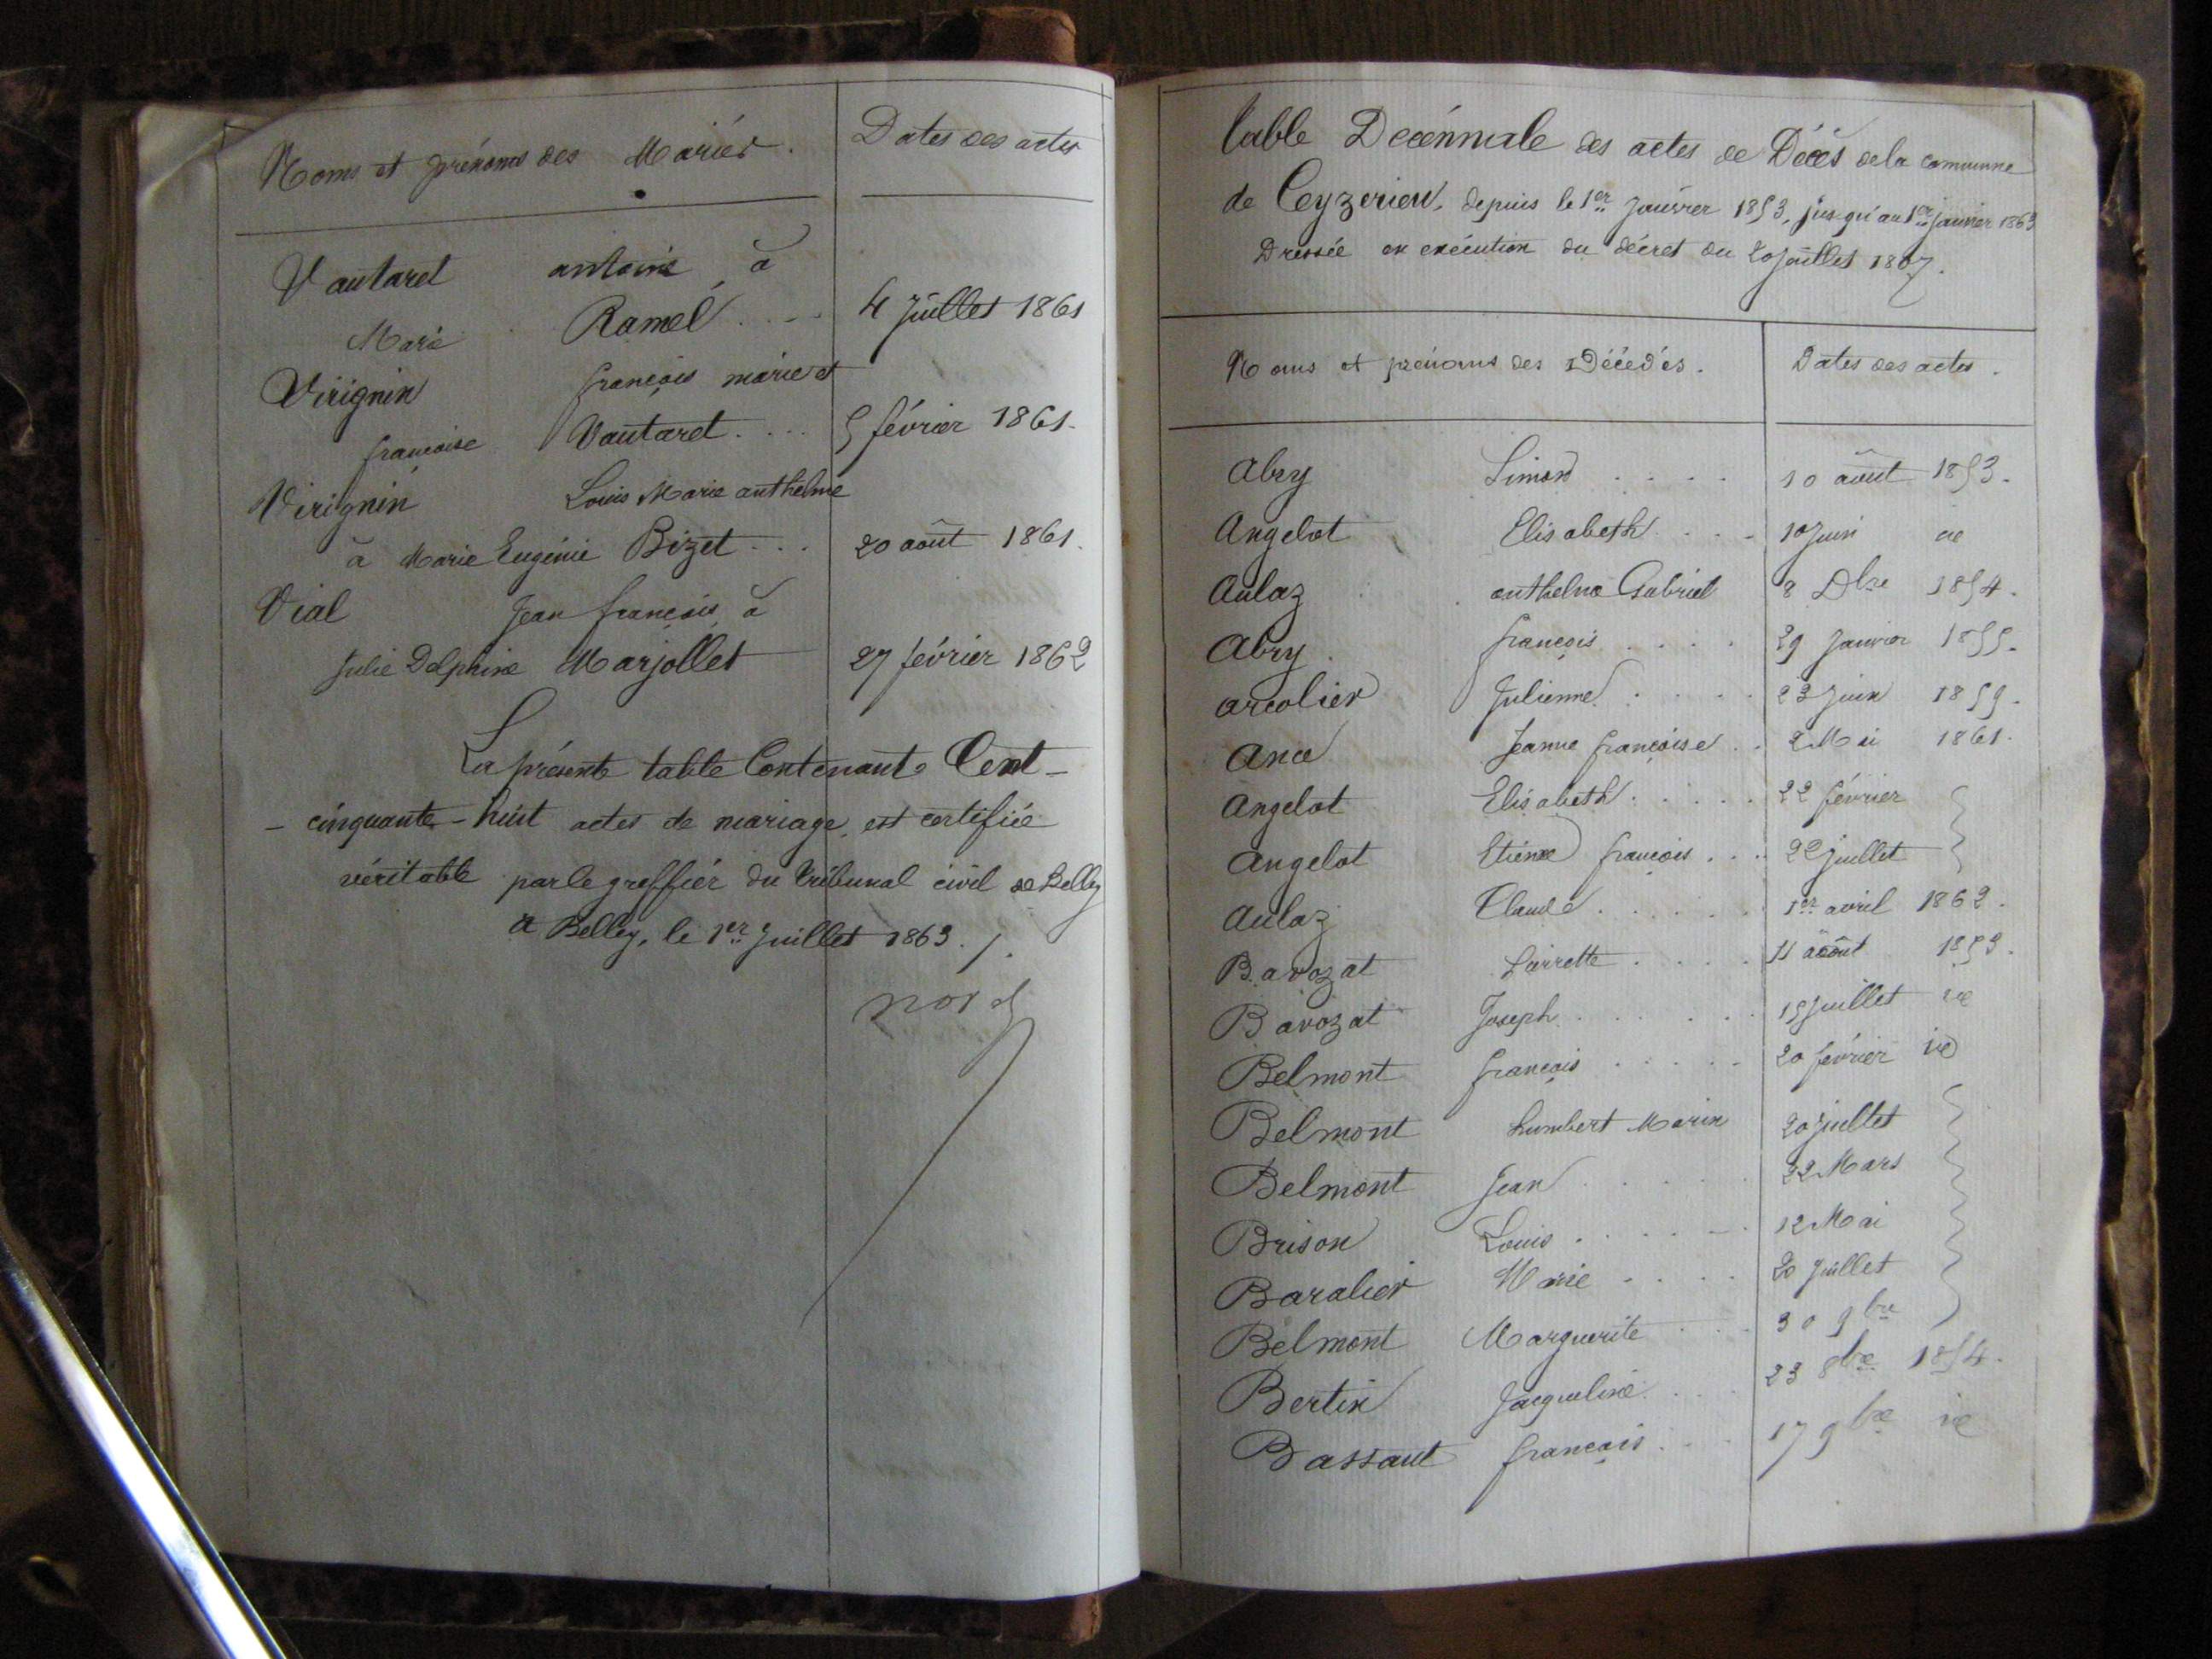 Noms et prénoms des Mariés. Dates des actes
Vautaret antoine à
Marie Ramel .... 4 juillet 1861
Virignin françois marie et
françoise Vautaret .... 5 février 1861.
Virignin Louis Marie anthelme
à Marie Eugénie Bizet ... 20 août 1861.
Vial Jean françois à
Julie Delphine Marjollet 27 février 1862
La présente table Contenant Cent-
- cinquante-huit actes de mariage, est certifiée
véritable par le greffier du tribunal civil de Belley
a Belley, le 1er Juillet 1863.
Table Décennale des actes de Décès de la commune
de Ceyzerieu, depuis le 1er Janvier 1853, jusqu'au 1er janvier 1863
Dressée en exécution du décret du 20 juillet 1807.
Noms et prénoms des Décédés. Dates des actes.
Abry Simon .... 10 août 1853.
Angelot Elisabeth ... 10 Juin id
Aulaz anthelme Gabriel 8 Dbre 1854.
Abry françois .... 29 Janvier 1855.
arcolier Julienne .... 23 Juin 1859.
Ance Jeanne françoise .. 2 Mai 1861.
Angelot Elisabeth ..... 22 février
Angelot Etienne françois ... 22 juillet
Aulaz Claude ...... 1er avril 1862.
Bavozat .... 11 août 1853.
Bavozat Joseph ...... 15 juillet id
Belmont françois ..... 20 février id
Belmont humbert Marin 20 juillet
Belmont Jean ..... 22 Mars
Brison Louis ..... 12 Mai
Baralier Marie .... 20 Juillet
Belmont Marguerite ... 30 9bre
Bertin Jacqueline ... 23 8bre 1854.
Bassaut françois ... 17 9bre id